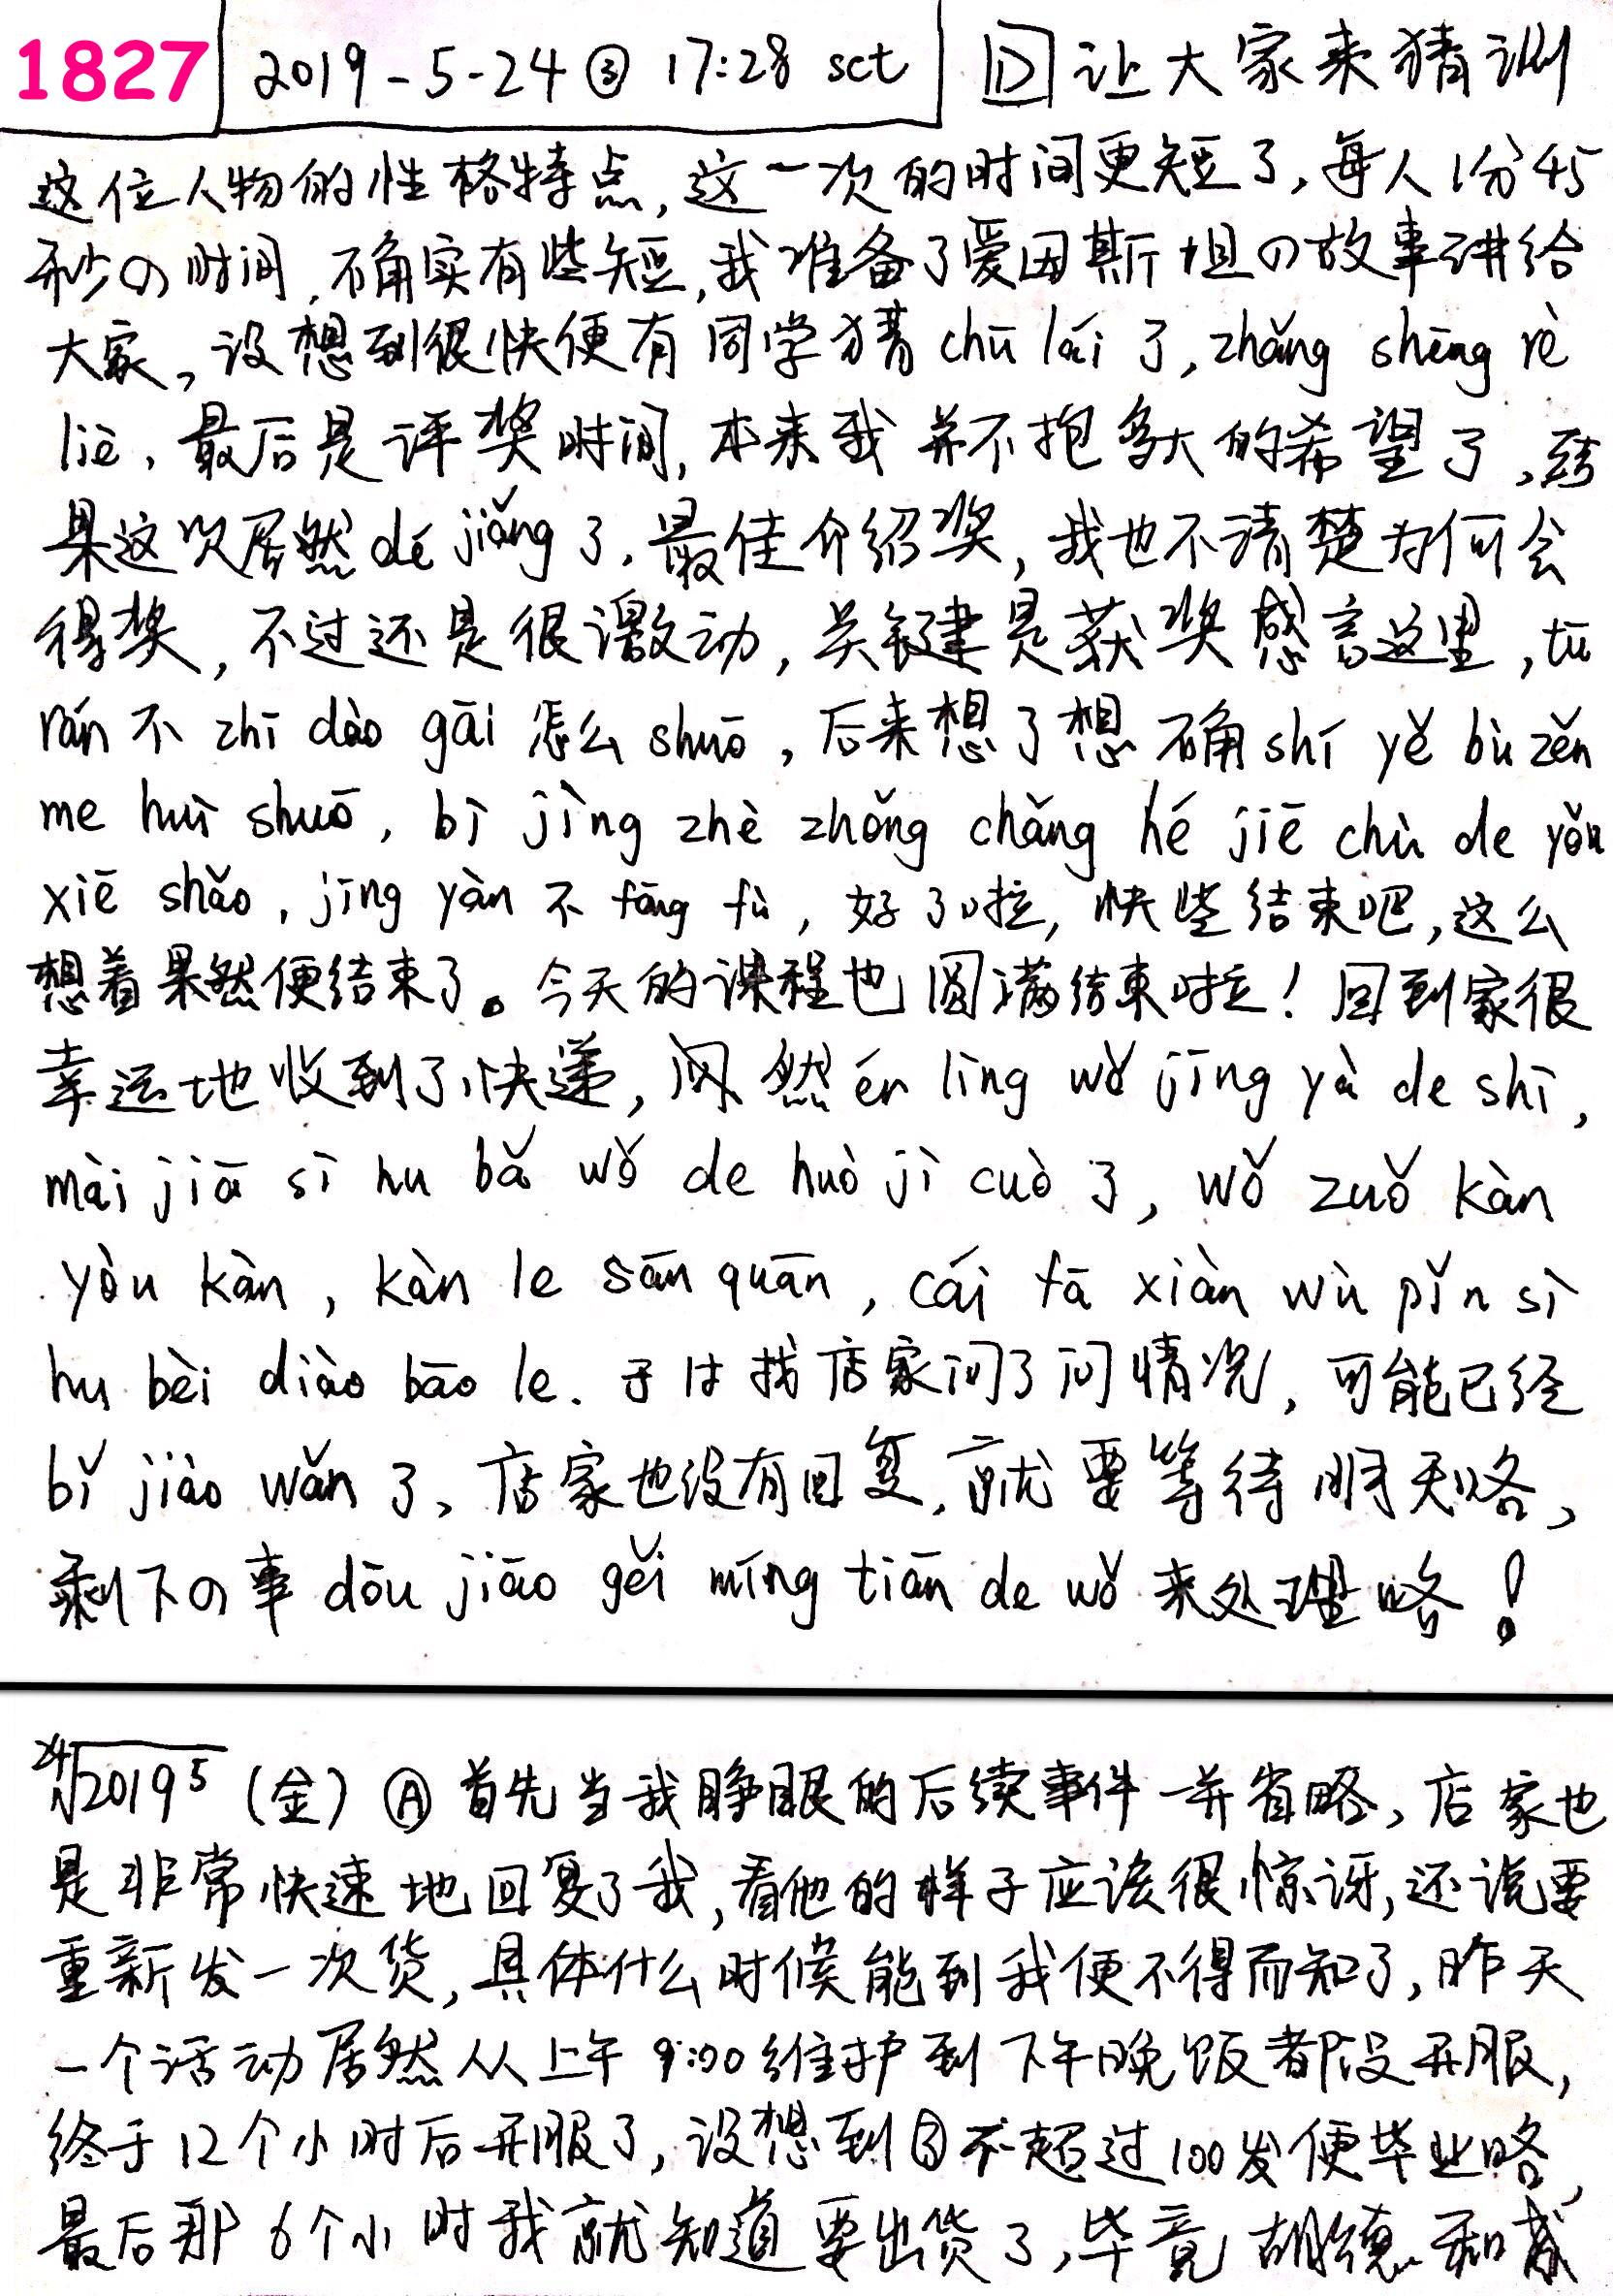 1827 2019-5-24 ③ 17:28 sct D 让大家来猜测
这位人物的性格特点,这一次的时间更短了,每人1分45
秒の时间,确实有些短,我准备了爱因斯坦の故事讲给
大家,没想到很快便有同学猜chū lái了,zhǎng shēng rè
liè,最后是评奖时间,本来我并不抱多大的希望了,结
果这次居然dé jiǎng了,最佳介绍奖,我也不清楚为何会
得奖,不过还是很激动,关键是获奖感言这里,tū
rán不zhī dào gāi怎么shuō,后来想了想确shí yě bù zěn
me huì shuō, bì jìng zhè zhǒng chǎng hé jiē chù de yǒu
xiē shǎo, jīng yàn不fēng fù,好了啦,快些结束吧,这么
想着果然便结束了。今天的课程也圆满结束啦!回到家很
幸运地收到了快递,然ér lìng wǒ jīng yà de shì,
mài jiā sì hu bǎ wǒ de huò jì cuò了, wǒ zuǒ kàn
yòu kàn, kàn le sān quān, cái fā xiàn wù pǐn sì
hu bèi diào bāo le.于是找店家问了问情况,可能已经
bǐ jiào wǎn了、店家也没有回复,就要等待明天咯、
剩下の事dōu jiāo gěi míng tiān de wǒ来处理咯!
24 2019 5 (金) Ⓐ 首先当我睁眼的后续事件一并省略,店家也
是非常快速地回复了我,看他的样子应该很惊讶,还说要
重新发一次货,具体什么时候能到我便不得而知了,昨天
一个活动居然从上午9:00维护到下午晚饭都没开服,
终于12个小时后开服了,没想到③不超过100发便毕业咯,
最后那6个小时我就知道要出货了,毕竟胡德和